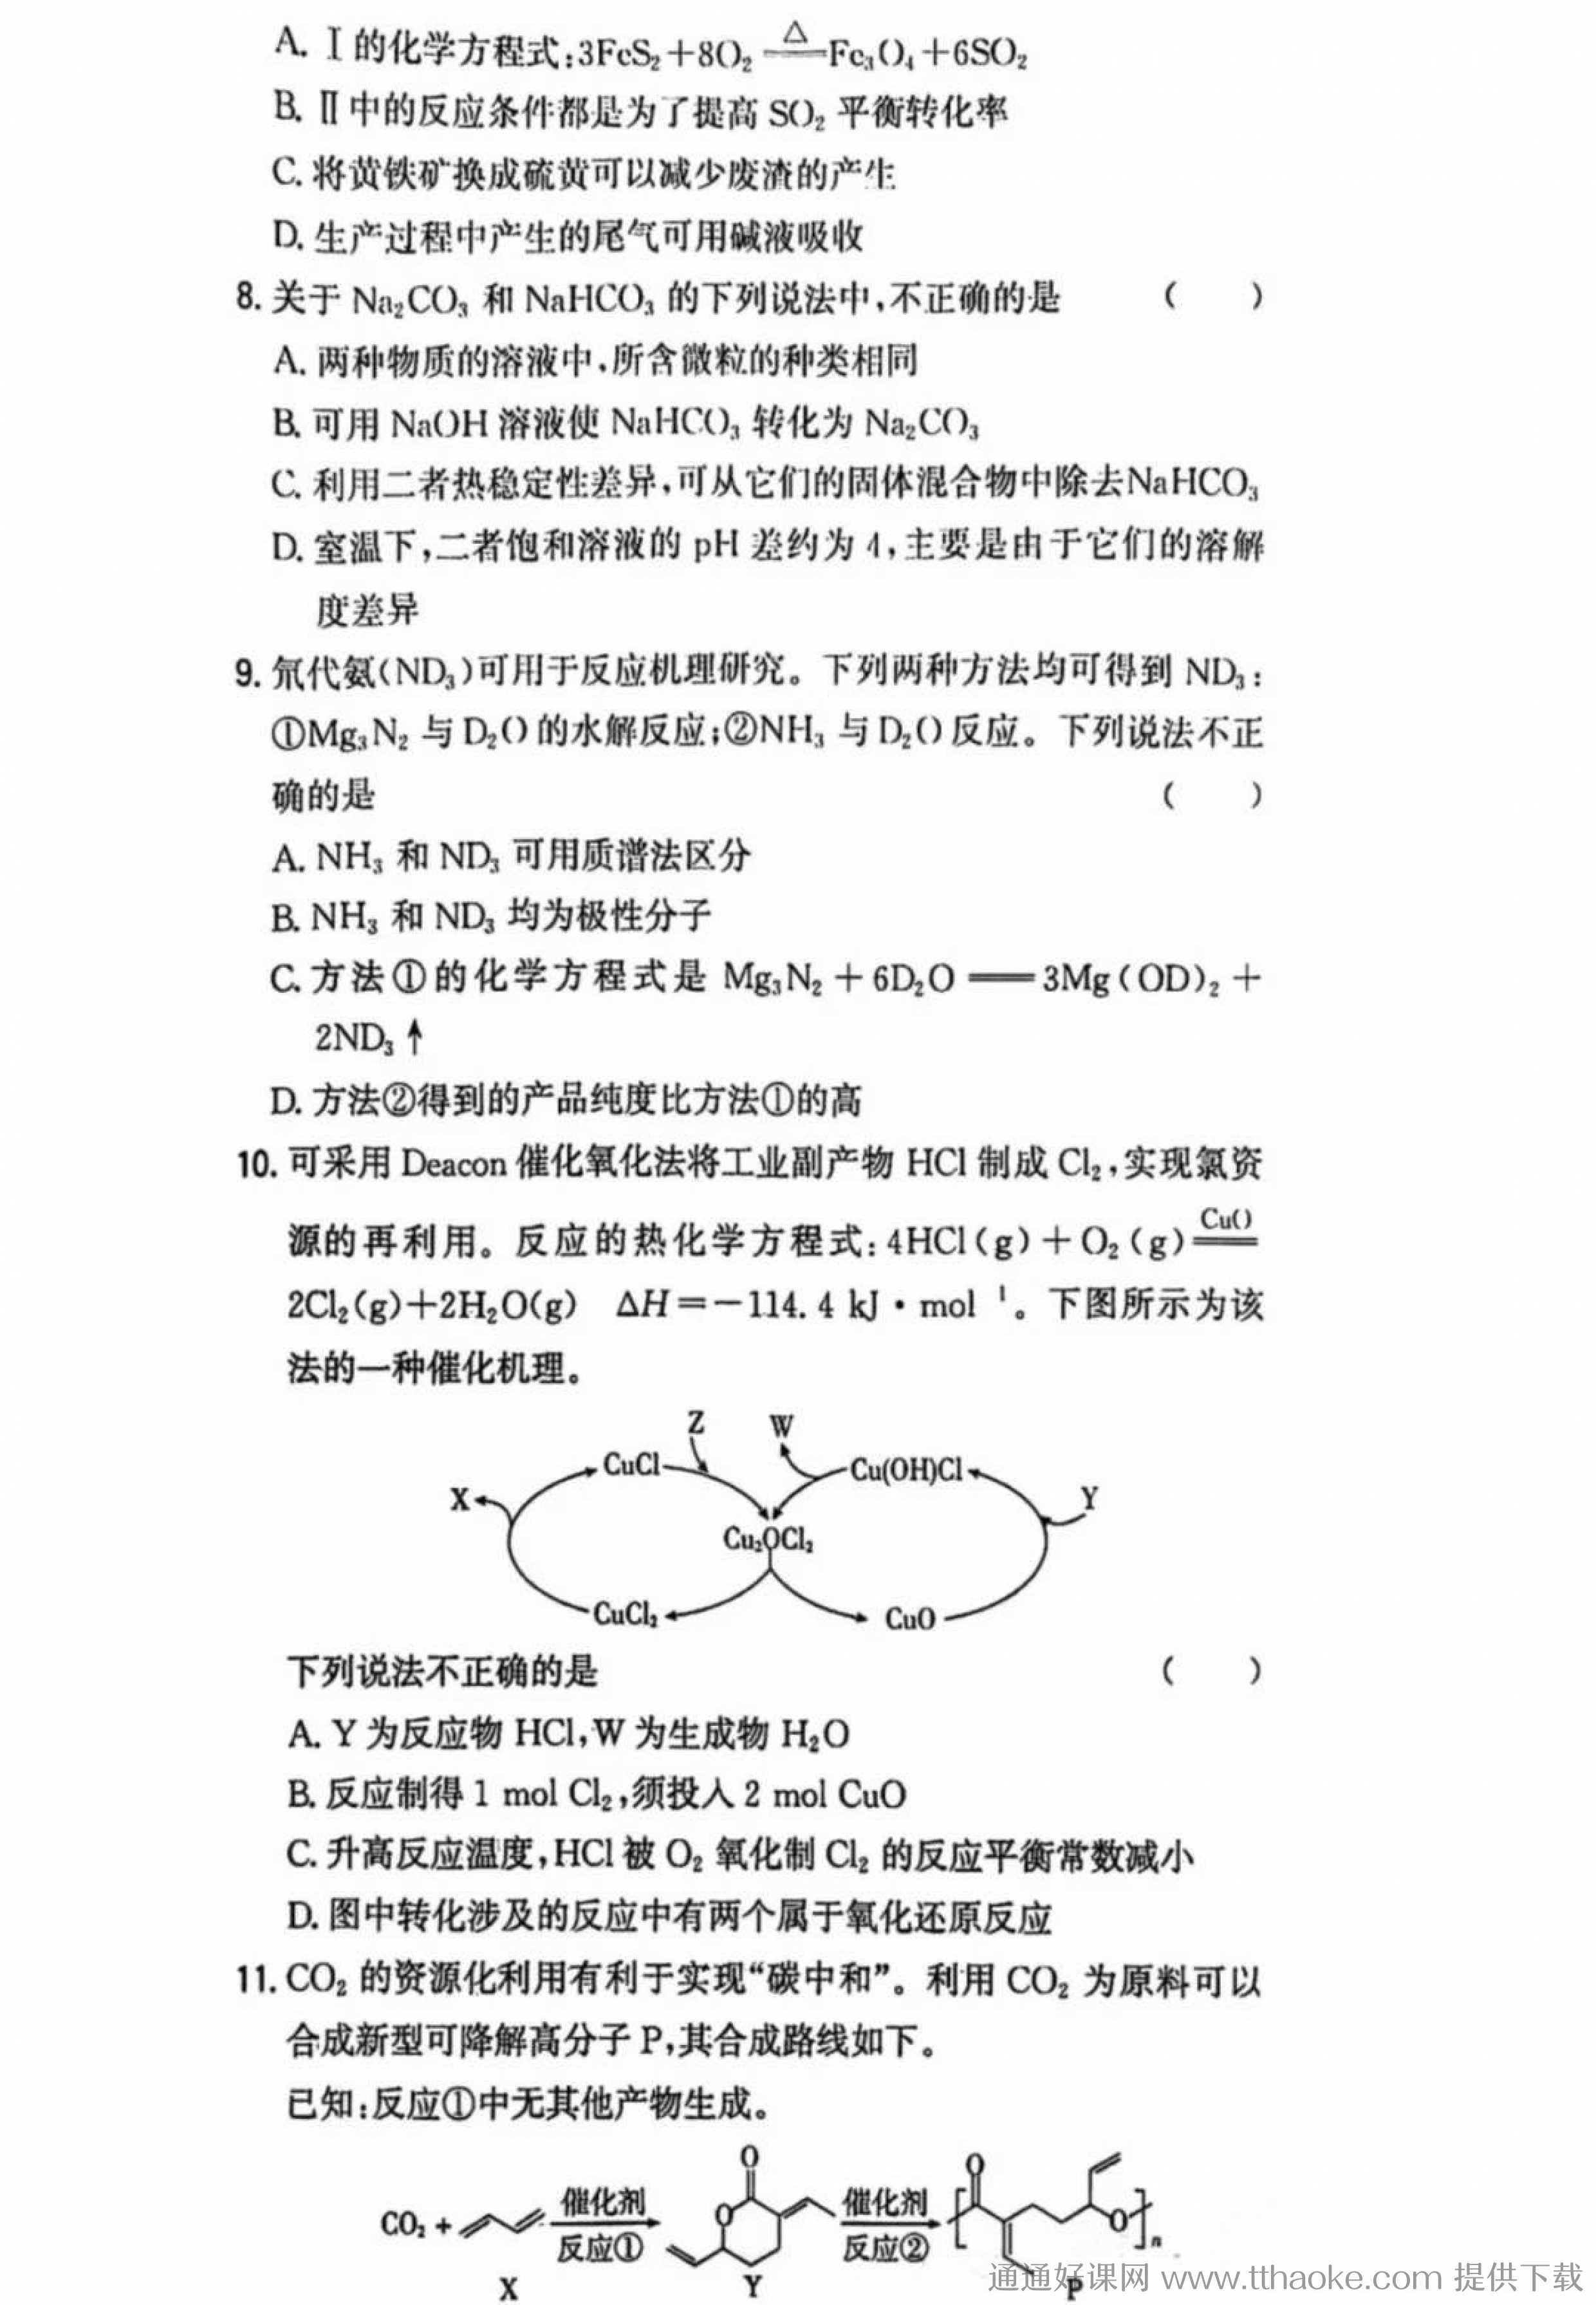 A. Ⅰ的化学方程式:3FeS₂+8O₂ =△= Fe₃O₄+6SO₂
B. Ⅱ中的反应条件都是为了提高 SO₂ 平衡转化率
C. 将黄铁矿换成硫黄可以减少废渣的产生
D. 生产过程中产生的尾气可用碱液吸收
8. 关于 Na₂CO₃ 和 NaHCO₃ 的下列说法中,不正确的是 (  )
A. 两种物质的溶液中,所含微粒的种类相同
B. 可用 NaOH 溶液使 NaHCO₃ 转化为 Na₂CO₃
C. 利用二者热稳定性差异,可从它们的固体混合物中除去NaHCO₃
D. 室温下,二者饱和溶液的 pH 差约为 4,主要是由于它们的溶解
度差异
9. 氘代氨(ND₃)可用于反应机理研究。下列两种方法均可得到 ND₃:
①Mg₃N₂ 与 D₂O 的水解反应;②NH₃ 与 D₂O 反应。下列说法不正
确的是 (  )
A. NH₃ 和 ND₃ 可用质谱法区分
B. NH₃ 和 ND₃ 均为极性分子
C. 方法①的化学方程式是 Mg₃N₂ + 6D₂O ══ 3Mg(OD)₂ +
2ND₃↑
D. 方法②得到的产品纯度比方法①的高
10. 可采用 Deacon 催化氧化法将工业副产物 HCl 制成 Cl₂,实现氯资
源的再利用。反应的热化学方程式:4HCl(g)+O₂(g) =CuO=
2Cl₂(g)+2H₂O(g) ΔH=-114.4 kJ·mol⁻¹。下图所示为该
法的一种催化机理。
Z W
CuCl Cu(OH)Cl
X Y
Cu₂OCl₂
CuCl₂ CuO
下列说法不正确的是 (  )
A. Y 为反应物 HCl,W 为生成物 H₂O
B. 反应制得 1 mol Cl₂,须投入 2 mol CuO
C. 升高反应温度,HCl 被 O₂ 氧化制 Cl₂ 的反应平衡常数减小
D. 图中转化涉及的反应中有两个属于氧化还原反应
11. CO₂ 的资源化利用有利于实现“碳中和”。利用 CO₂ 为原料可以
合成新型可降解高分子 P,其合成路线如下。
已知:反应①中无其他产物生成。
O O
CO₂ + 催化剂 O 催化剂 O n
反应① 反应②
X Y P
通通好课网 www.tthaoke.com 提供下载